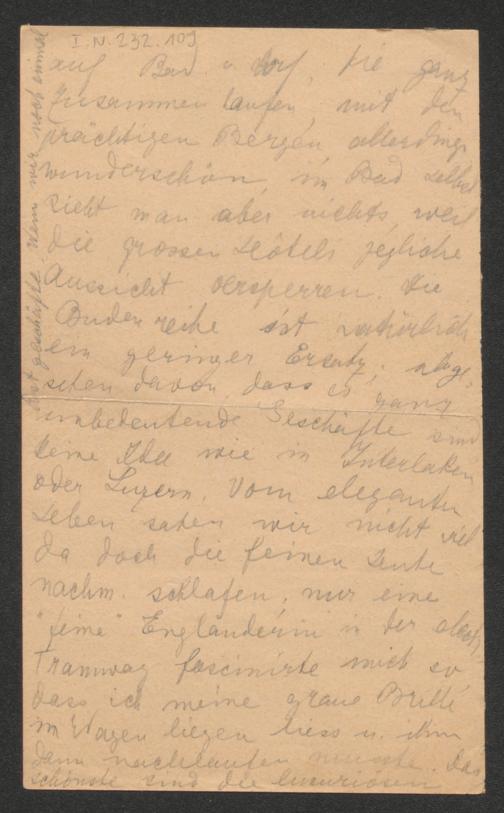 I.N. 232.109
auf Bad u. Dorf, die ganz
zusammen laufen, mit den
prächtigen Bergen, allerdings
wunderschön, im Bad selbst
sieht man aber nichts, weil
die grossen Hôtels jegliche
Aussicht versperren. Die
Budenreihe ist natürlich
ein geringer Ersatz, abge-
sehen davon, dass es ganz
unbedeutende Geschäfte sind
keine Idee wie in Interlaken
oder Luzern. Vom eleganten
Leben sahen wir nicht viel
da doch die feinen Leute
nachm. schlafen, nur eine
"feine" Engländerin in der elect.
Tramway fascinirte mich so
dass ich meine graue Brille
im Wagen liegen liess u. ihm
dann nachlaufen musste. Das
schönste sind die luxuriösen
geschäfte. Wenn wir noch einmal